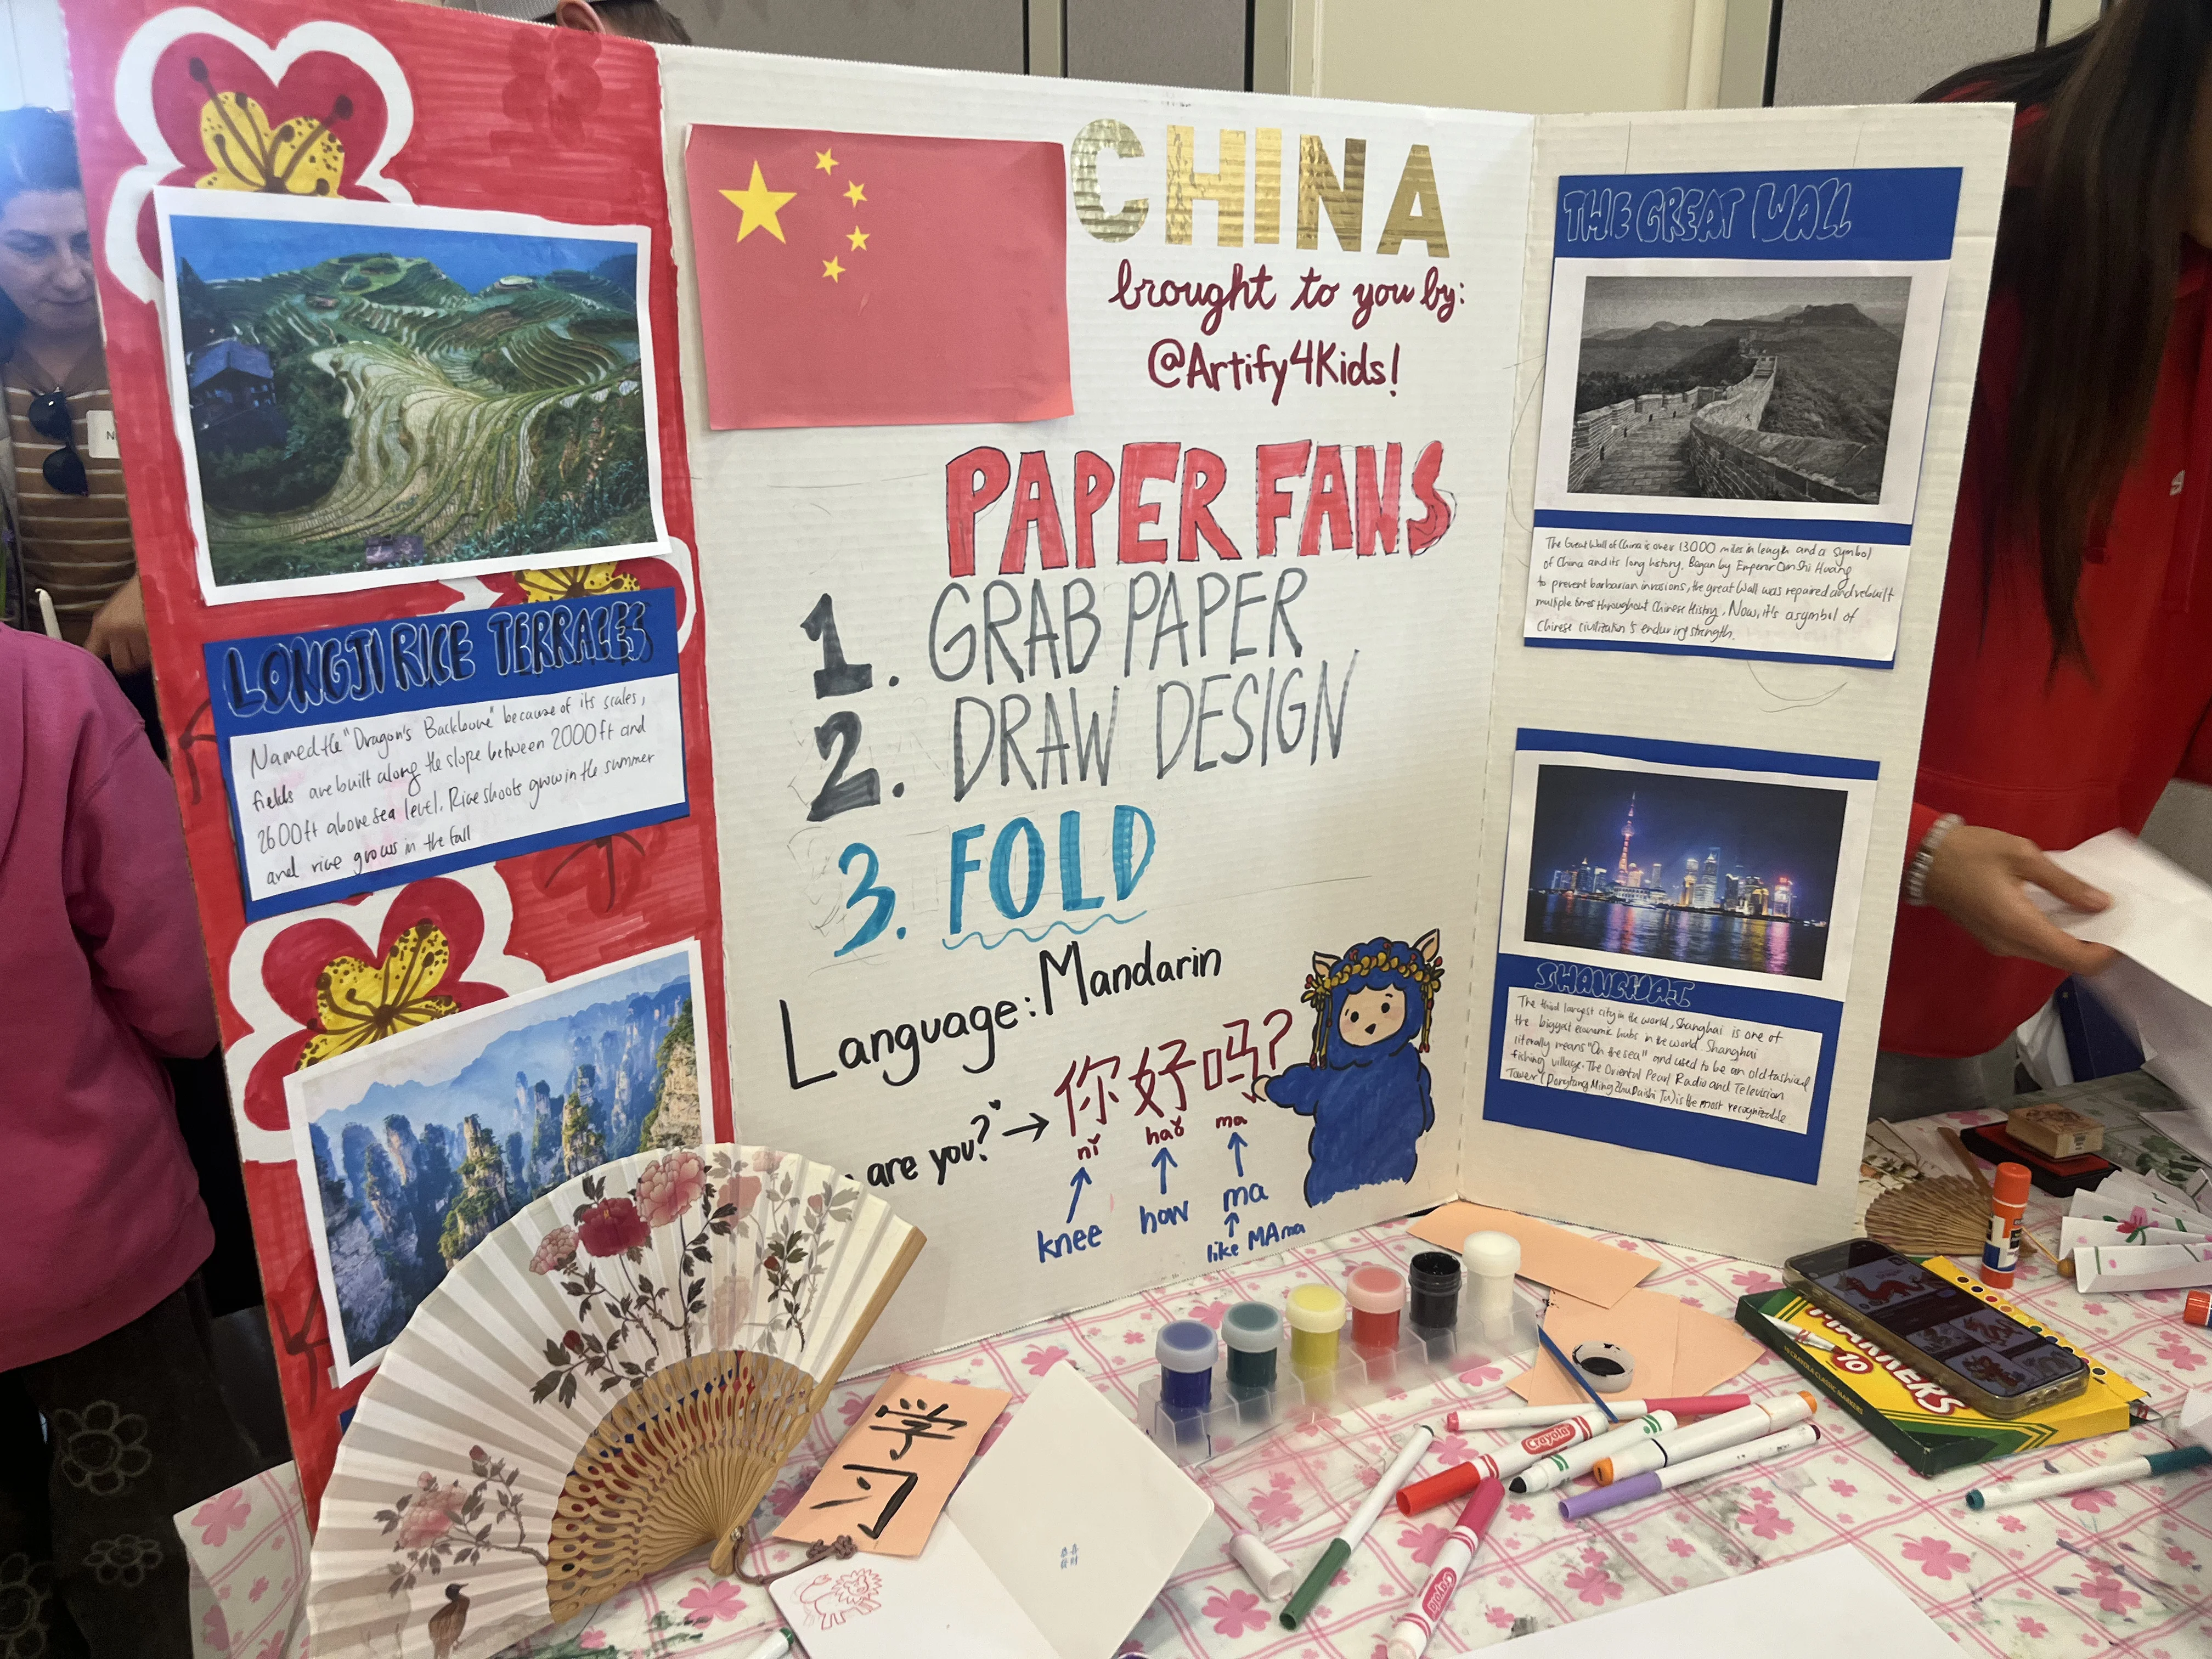 LONGJI RICE TERRACES
Named the "Dragon's Backbone" because of its scales,
fields are built along the slope between 2000ft and
2600ft above sea level. Rice shoots grow in the summer
and rice grows in the fall
CHINA
brought to you by:
@Artify4Kids!
PAPER FANS
1. GRAB PAPER
2. DRAW DESIGN
3. FOLD
Language: Mandarin
are you?" → 你好吗?
nǐ hǎo ma
knee how ma
like MAma
THE GREAT WALL
The Great Wall of China is over 13000 miles in length and a symbol
of China and its long history. Began by Emperor Qin Shi Huang
to prevent barbarian invasions, the great Wall was repaired and rebuilt
multiple times throughout Chinese History. Now, it's a symbol of
Chinese civilization's enduring strength.
SHANGHAI
The third largest city in the world, Shanghai is one of
the biggest economic hubs in the world. Shanghai
literally means "On the sea" and used to be an old fashioned
fishing village. The Oriental Pearl Radio and Television
Tower (Dongfang Ming Zhu Dianshi Ta) is the most recognizable
学
习
MARKERS
10
Crayola
Crayola